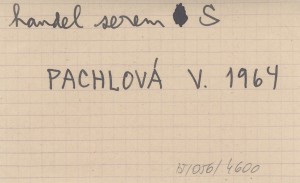 handel serem S
PACHLOVÁ V. 1964
17/056/4600